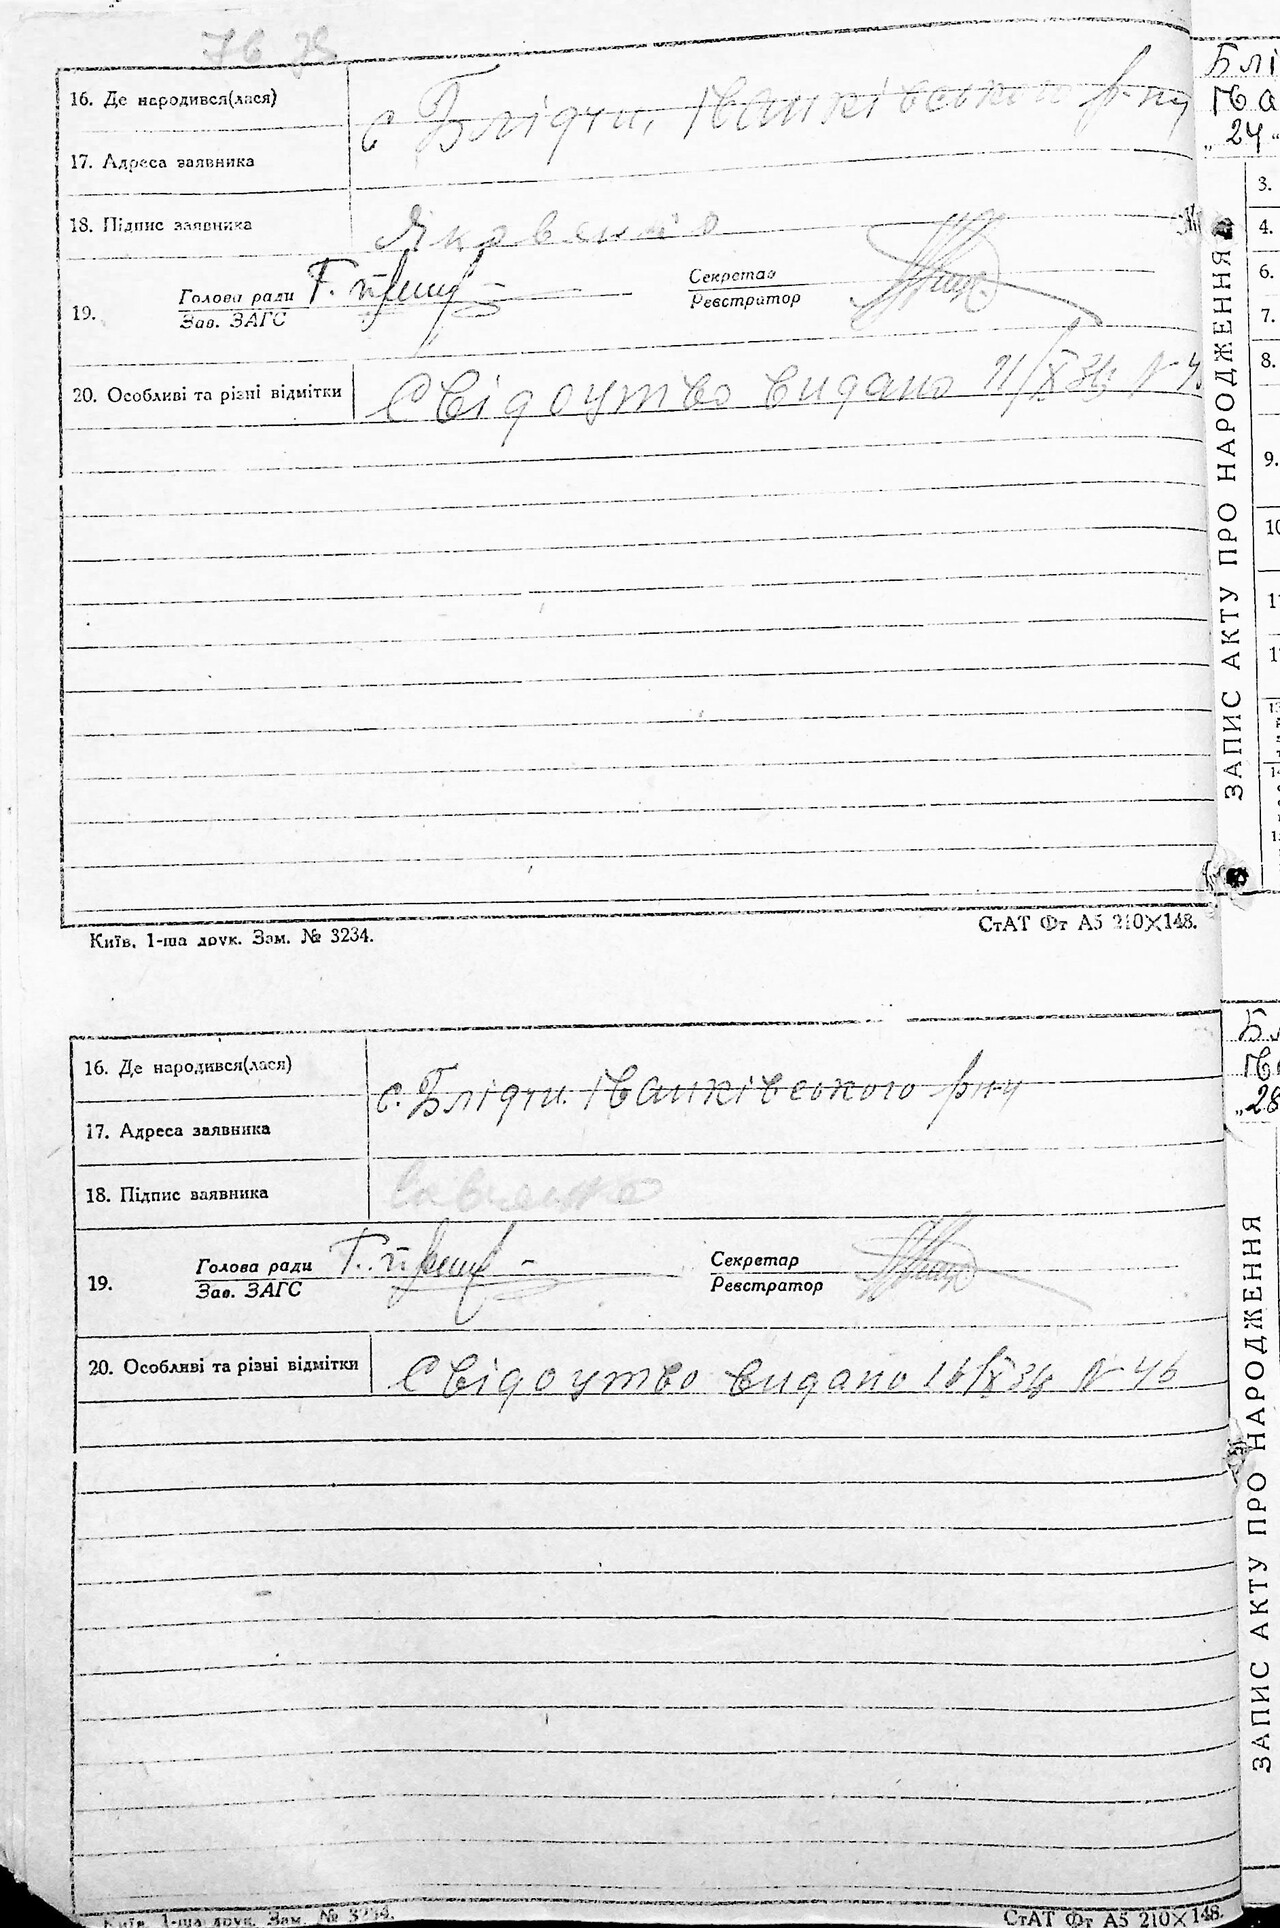 16. Де народився(лася)
с Блідчи, Іванківського р-ну
17. Адреса заявника
18. Підпис заявника Яковенко
19. Голова ради Г.
Зав. ЗАГС
Секретар
Реєстратор
20. Особливі та різні відмітки Свідоцтво видано 21/IX 34 N 4
Київ, 1-ша друк. Зам. № 3234. СтАТ Фт А5 210×148.
16. Де народився(лася)
с. Блідчи Іванківського р-ну
17. Адреса заявника
18. Підпис заявника
19. Голова ради Г.
Зав. ЗАГС
Секретар
Реєстратор
20. Особливі та різні відмітки Свідоцтво видано 16/IX 34 N 46
Київ, 1-ша друк. Зам. № 3234. СтАТ Фт А5 210×148.
Блі
Іва
„24“
3.
4.
6.
7.
8.
9.
ЗАПИС АКТУ ПРО НАРОДЖЕННЯ
Бл
Іва
„28
ЗАПИС АКТУ ПРО НАРОДЖЕННЯ